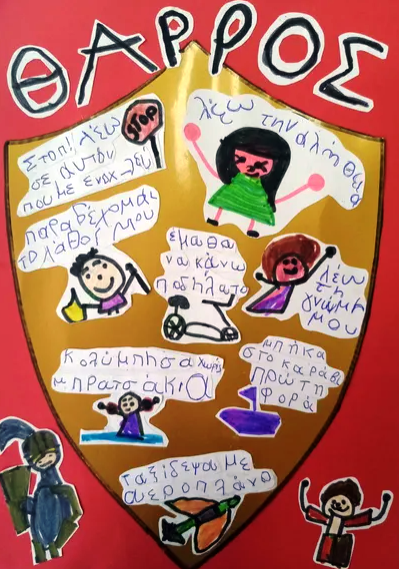 ΘΑΡΡΟΣ
Στοπ! λέω
σε αυτόν
που με ενοχλεί
STOP
λέω την αλήθεια
παραδέχομαι
το λάθος μου
έμαθα
να κάνω
ποδήλατο
λέω
τη
γνώμη
μου
κολύμπησα χωρίς
μπρατσάκια
μπήκα
στο καράβι
πρώτη
φορά
ταξίδεψα με
αεροπλάνο